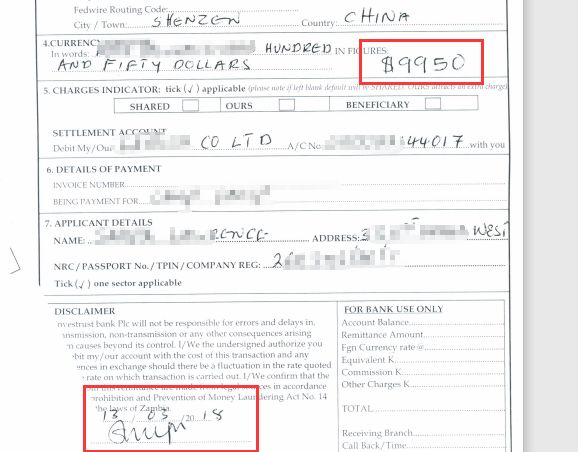 Fedwire Routing Code:
City / Town: SHENZEN Country: CHINA
4.CURRENCY
In words: HUNDRED IN FIGURES:
AND FIFTY DOLLARS $9950
5. CHARGES INDICATOR: tick (✓) applicable (please note if left blank default will be SHARED. OURS attracts an extra charge)
SHARED OURS BENEFICIARY
SETTLEMENT ACCOUNT
Debit My/Our CO LTD A/C No 44017 with you
6. DETAILS OF PAYMENT
INVOICE NUMBER
BEING PAYMENT FOR
7. APPLICANT DETAILS
NAME: ADDRESS: WEST
NRC/PASSPORT No./TPIN/COMPANY REG: 2
Tick (✓) one sector applicable
DISCLAIMER
nvestrust bank Plc will not be responsible for errors and delays in,
ansmission, non-transmission or any other consequences arising
m causes beyond its control. I/We the undersigned authorize you
bit my/our account with the cost of this transaction and any
ences in exchange should there be a fluctuation in the rate quoted
rate on which transaction is carried out. I/We confirm that the
this remittance are made in accordance
rohibition and Prevention of Money Laundering Act No. 14
the laws of Zambia.
13 / 03 /20 18
FOR BANK USE ONLY
Account Balance
Remittance Amount
Fgn Currency rate @
Equivalent K
Commission K
Other Charges K
TOTAL
Receiving Branch
Call Back/Time